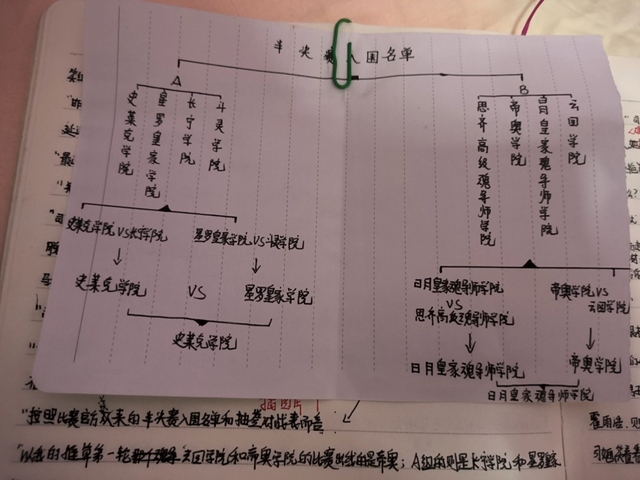 半决赛入围名单
A
B
史莱克学院
星罗皇家学院
长宁学院
斗灵学院
思齐高级魂导师学院
帝奥学院
日月皇家魂导师学院
云回学院
史莱克学院VS长宁学院
星罗皇家学院VS斗灵学院
史莱克学院
VS
星罗皇家学院
史莱克学院
日月皇家魂导师学院
VS
思齐高级魂导师学院
帝奥学院VS
云回学院
日月皇家魂导师学院
帝奥学院
日月皇家魂导师学院
插图片
"按照比赛官方发来的半决赛入围名单和抽签对战表而言
"以我的推算第一轮云回学院和帝奥学院的比赛出线的是帝奥；A组的则是长宁学院和星罗皇家